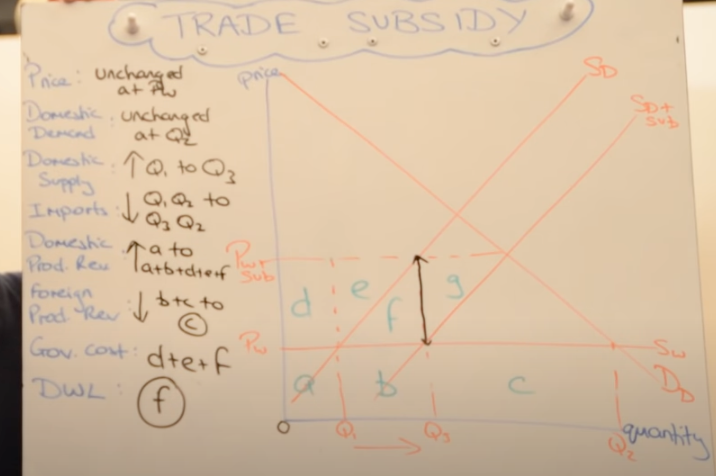 TRADE SUBSIDY
Price: unchanged
at Pw
Domestic
Demand: unchanged
at Q2
Domestic
Supply ↑ Q1 to Q3
Imports: ↓ Q1Q2 to
Q3Q2
Domestic
Prod. Rev ↑ a to
a+b+d+e+f
Foreign
Prod. Rev ↓ b+c to
c
Gov. cost: d+e+f
DWL: f
price
SD
SD+
sub
Pw+
sub
d
e
f
g
Pw
Sw
DD
a
b
c
O
Q1
Q3
Q2
quantity